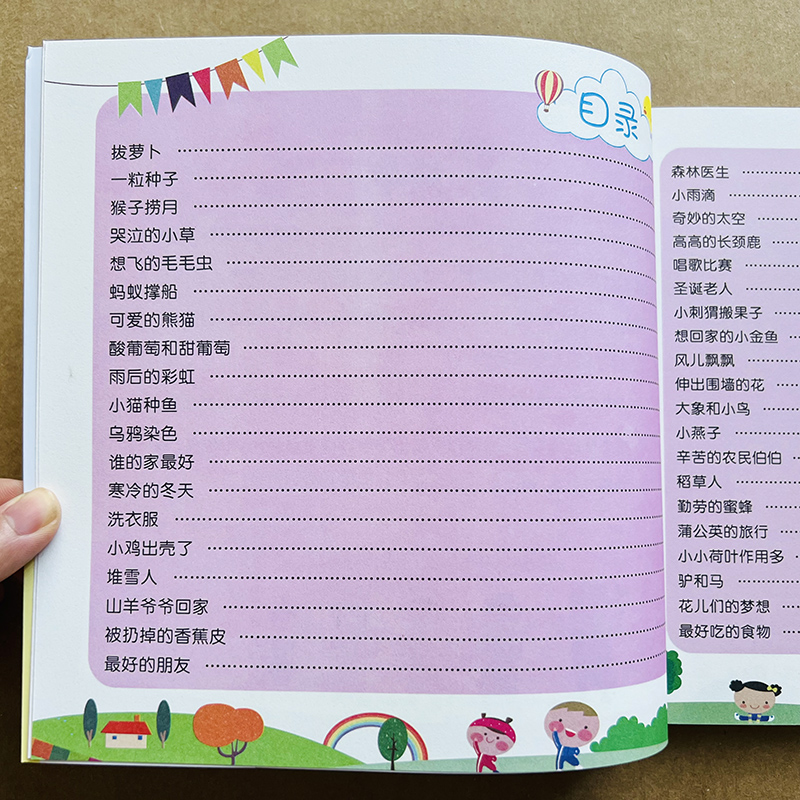 目录
拔萝卜
一粒种子
猴子捞月
哭泣的小草
想飞的毛毛虫
蚂蚁撑船
可爱的熊猫
酸葡萄和甜葡萄
雨后的彩虹
小猫种鱼
乌鸦染色
谁的家最好
寒冷的冬天
洗衣服
小鸡出壳了
堆雪人
山羊爷爷回家
被扔掉的香蕉皮
最好的朋友
森林医生
小雨滴
奇妙的太空
高高的长颈鹿
唱歌比赛
圣诞老人
小刺猬搬果子
想回家的小金鱼
风儿飘飘
伸出围墙的花
大象和小鸟
小燕子
辛苦的农民伯伯
稻草人
勤劳的蜜蜂
蒲公英的旅行
小小荷叶作用多
驴和马
花儿们的梦想
最好吃的食物